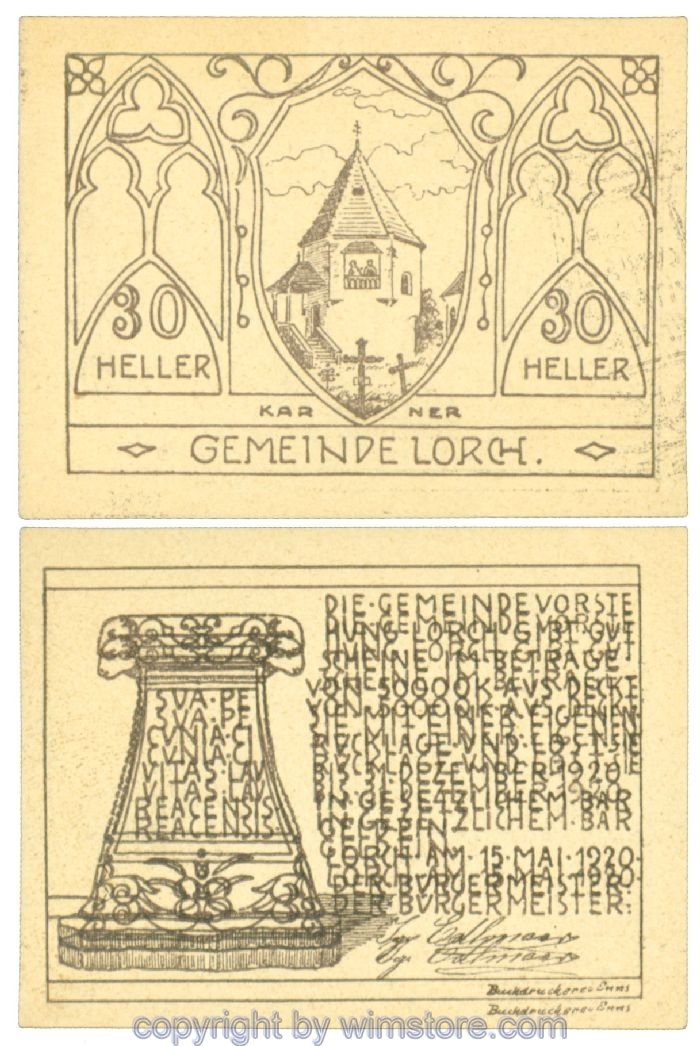 30
HELLER
30
HELLER
KAR NER
GEMEINDE LORCH.
SVA·PE
CVNIA·CI
VITAS·LAV
REACENSIS·
DIE·GEMEINDEVORSTE
HUNG·LORCH·GIBT·GUT
SCHEINE·IM·BETRAGE
VON·50000K·AVS·DECKT
SIE·MIT·EINER·EIGENEN
RVCKLAGE·VND·LOST·SIE
BIS·31·DEZEMBER·1920
IN·GESETZLICHEM·BAR
GELDEIN·
LORCH·AM·15·MAI·1920·
DER·BURGERMEISTER:
Buchdruckerei Enns
Buchdruckerei Enns
copyright by wimstore.com